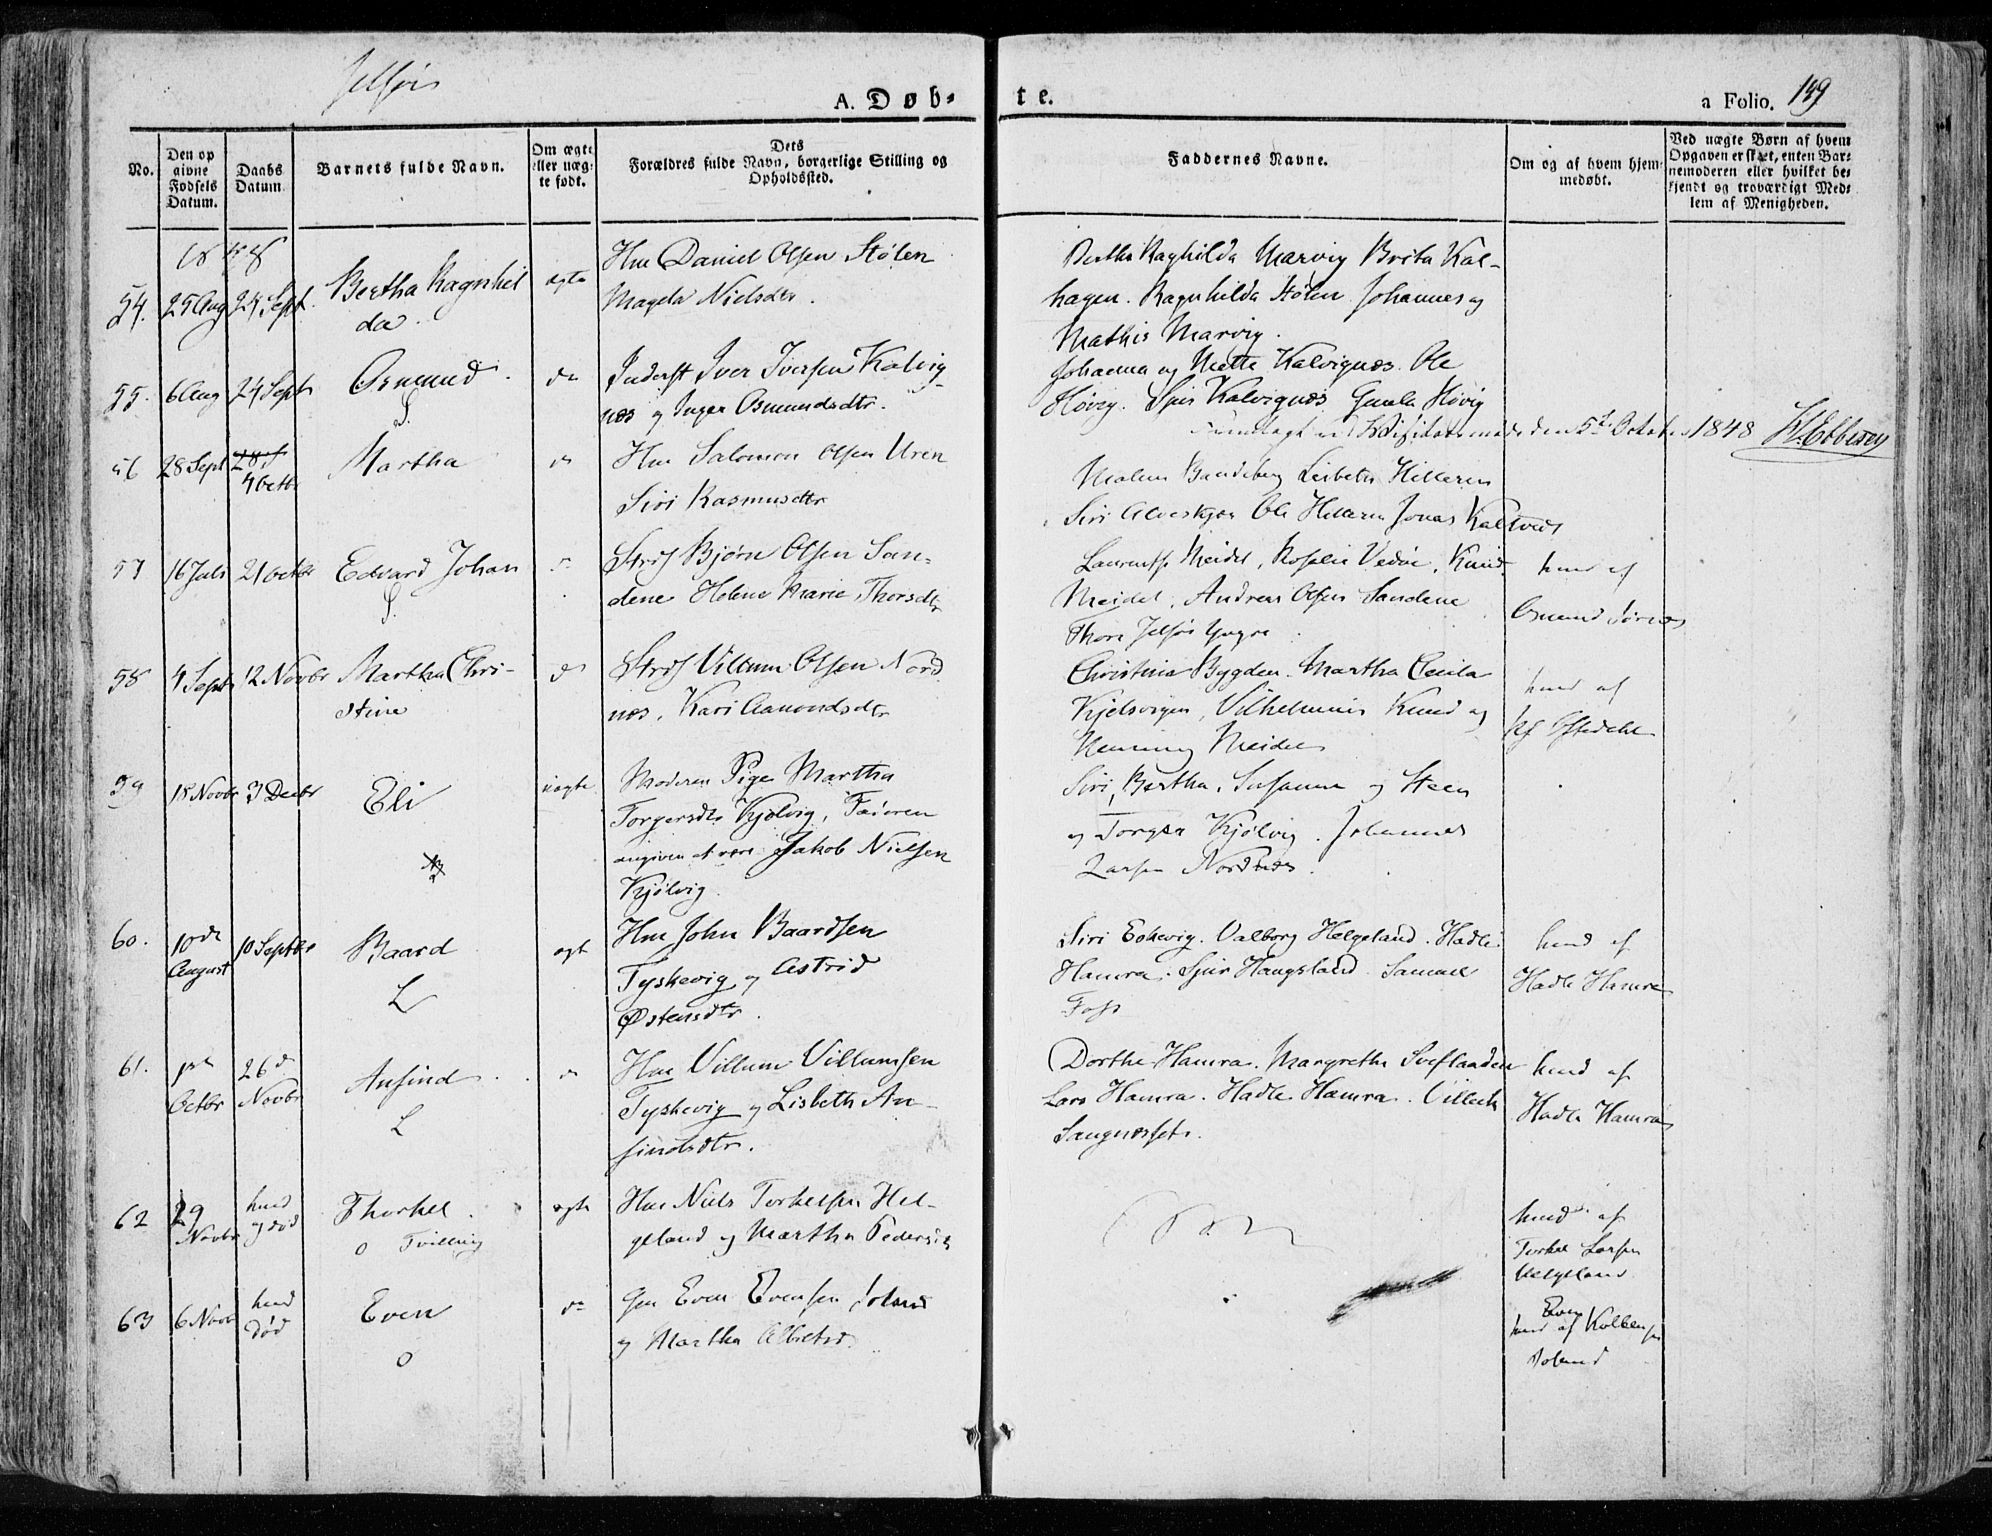 Jelsøe
A. Døb-
te.
a Folio. 139
No.
Den op
givne
Fødsels
Datum.
Daabs
Datum
Barnets fulde Navn.
Om ægte
eller uæg-
te født.
Dets
Forældres fulde Navn, borgerlige Stilling og
Opholdssted.
Faddernes Navne.
Om og af hvem hjem-
medøbt.
Ved uægte Børn af hvem
Opgaven er skeet, enten Bar-
nemoderen eller hvilket be-
kjendt og troværdigt Med-
lem af Menigheden.
1848
54. 25 Aug 24 Sept. Bertha Ragnhil
da.
ægte
Hm Daniel Olsen Stølen
Magela Nielsdtr.
Bertha Raghilda Marvig Brita Kal-
hagen. Ragnhilda Stølen Johannes og
Mathis Marvig.
55. 6 Aug 24 Sept Osmund
S.
do
Inderst Iver Iversen Kalvig
næs og Inger Osmundsdtr.
Johanna og Mette Kalvignæs. Ole
Høvig. Sjur Kalvignæs Gunla Høvig
den 5te October 1848 H. Ebbesen
56 28 Sept 28 S
4 Octbr
Martha
do
Hm Salomon Olsen Uren
Siri Rasmusdtr
Malene Lisbeth Hilleren
Siri Alveskjær Ole Hilleren Jonas Kaltveds
57 16 Juli 21 Octbr Edvard Johan
S.
Strs Bjørn Olsen San-
dene Helene Marie Thorsdtr
Laurentse Meidel, Roselie Vedøe, Knud
Meidel, Andreas Olsen Sandene
Thore Jelsøe Yngre
hmd af
Osmund
58 4 Septb 12 Novbr Martha Chri-
stine
do
Strs Villum Olsen Nord
næs, Kari Aamondsdtr
Christine Bygden. Martha Cecilia
Kjelsvigen, Vilhelmine Knud og
Henning Meidel
hmd af
59 18 Novbr 3 Decbr Eli
uægte
Moderen Pige Martha
Torgersdtr Kjølvig, Faderen
angiven at være Jakob Nielsen
Kjølvig.
Siri, Bertha, Susanne og Steen
og Torger Kjølvig. Johannes
Larsen Nordnæs.
60. 10de
August
10 Septbr Baard
L
ægt
Hm John Baardsen
Tyskevig og Astrid
Østensdtr.
Siri Eskevig. Valborg Helgeland. Hadle
Hamra. Sjur Haugsland. Samuel
Foss
hmd af
Hadle Hamra
61. 1ste
Octbr
26de
Novbr
Ansind
L
do
Hm Villum Villumsen
Tyskevig og Lisbeth An-
sindsdtr.
Dorthe Hamra. Margretha Svestlanden
Lars Hamra. Hadle Hamra. Villeck
Sangnæsset.
hmd af
Hadle Hamra
62 29
Novbr
hmd
og død
Thorkel
o Tvilling
ægte
Hm Niels Torkelsen Hel-
geland og Martha Pedersdtr
hmd af
Torkel Larsen
Helgeland
63 6 Novb hmd
død
Even
o
do
Gm Even Evensen Foland
og Martha Albretsd.
Even
hmd af Kolbensen
Foland